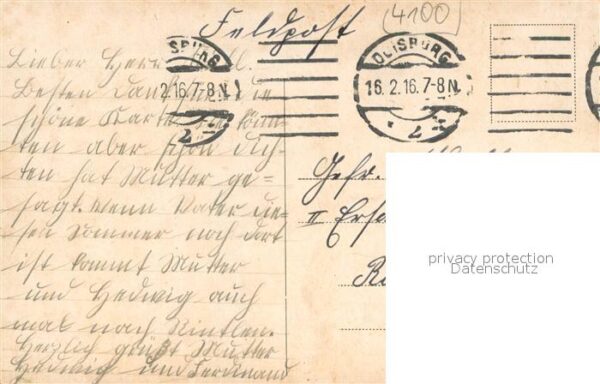 Feldpost
(4100)
DUISBURG
16.2.16.7-8N.
2
SBURG
2.16.7-8N
2
Lieber Herr
Besten Dank für die
schöne Karte. Sie
ten aber schön
ten hat Mutter ge=
sagt. Wenn Vater die=
sen Sommer noch dort
ist kommt Mutter
und Hedwig auch
mal nach Rintlen.
Herzlich grüßt Mutter
Hedwig und Ferdinand
Gefr.
II Ersa
privacy protection
Datenschutz